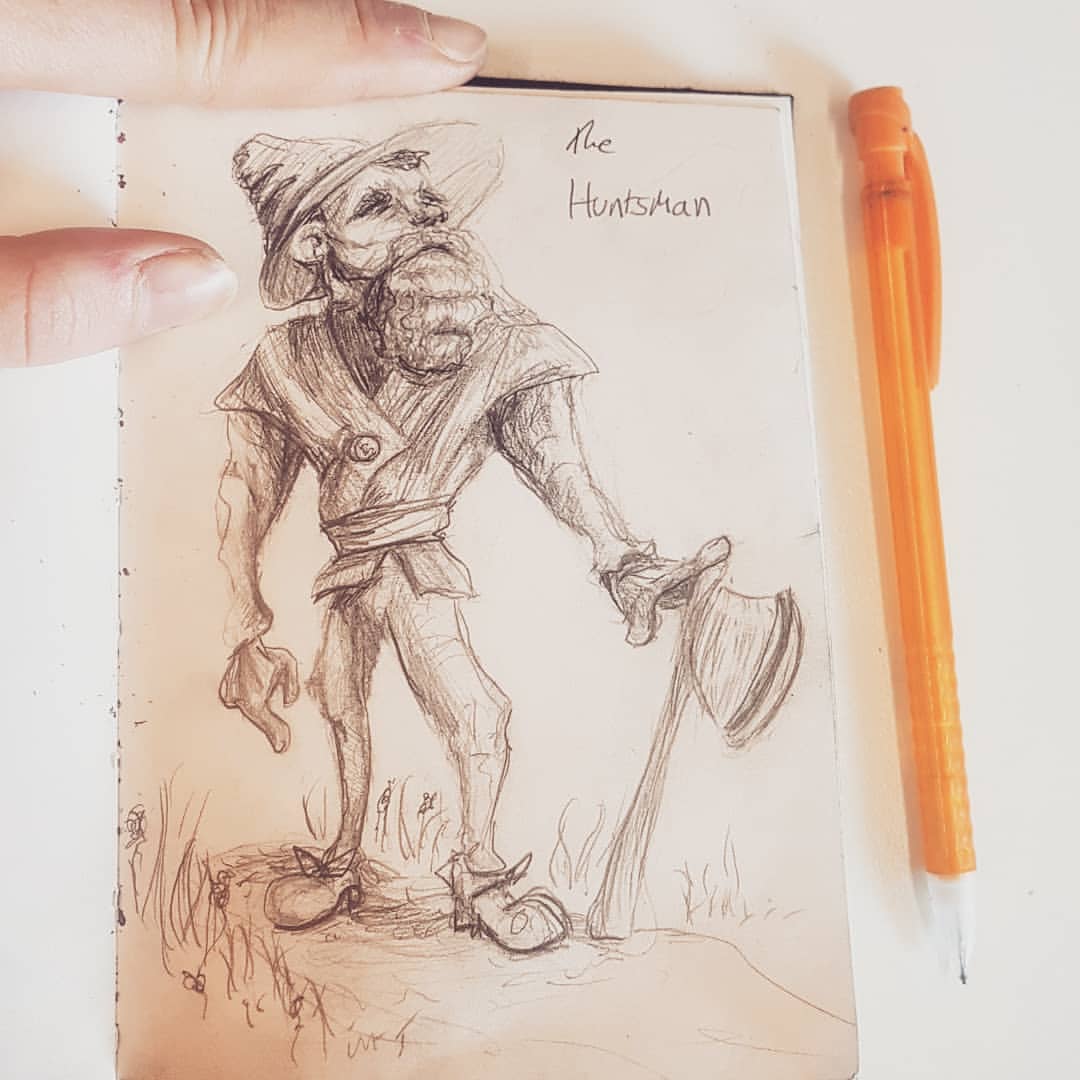 The
Huntsman